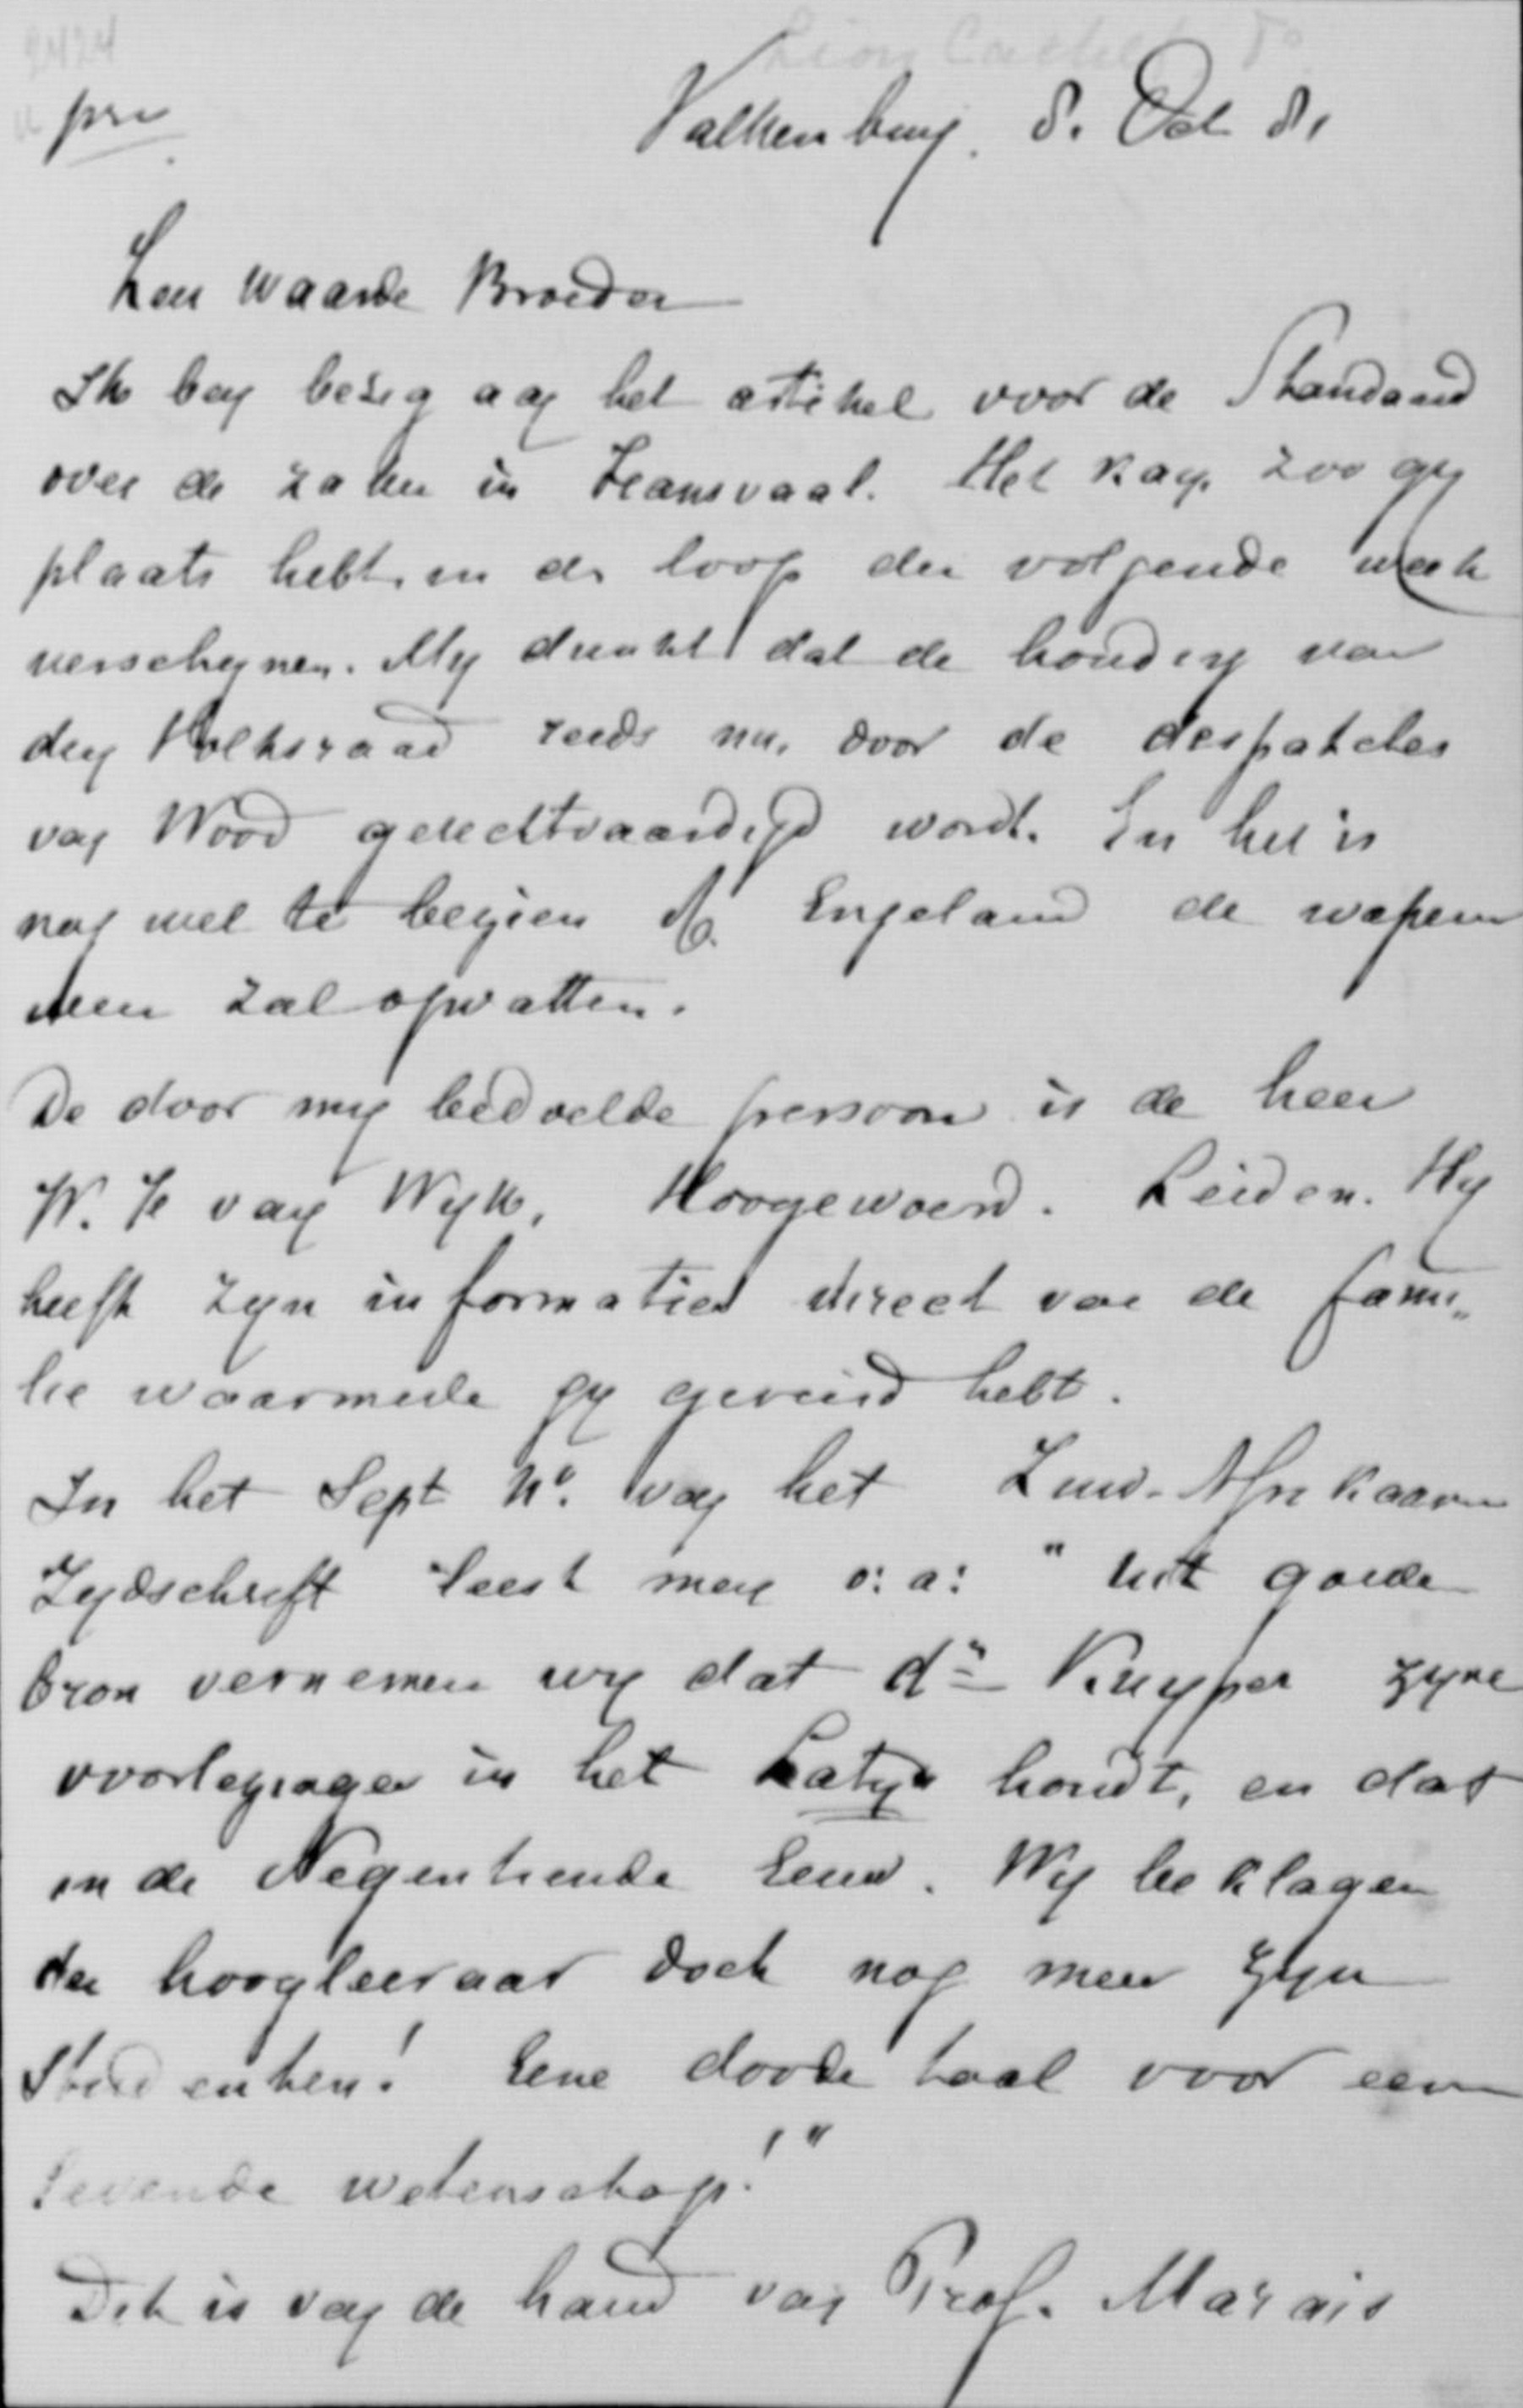 2424
pri
Lion Cachet
Valkenburg. 8. Oct 81
Zeer Waarde Broeder
Ik ben bezig aan het artikel voor de Standaard
over de zaken in Transvaal. Het kan, zoo gy
plaats hebt, in de loop der volgende week
verschynen. My dunkt dat de houding van
den Volksraad reeds nu, door de despatches
van Wood gerechtvaardigd wordt. En het is
nog wel te bezien of Engeland de wapen
weer zal opvatten.
De door my bedoelde persoon is de heer
W. van Wyk, Hoogewoerd. Leiden. Hy
heeft zyn informaties direct van de fami„
lie waarmede gy gereisd hebt.
In het Sept No. van het Zuid-Afrikaansn
Tydschrift leest men o: a: "Uit goede
bron vernemen wy dat dr Kuyper zyne
voorlezingen in het Latyn houdt, en dat
in de Negentiende Eeuw. Wy beklagen
den hoogleeraar doch nog meer zyn
Studenten! Eene doode taal voor eene
levende wetenschap!"
Dit is van de hand van Prof. Marais